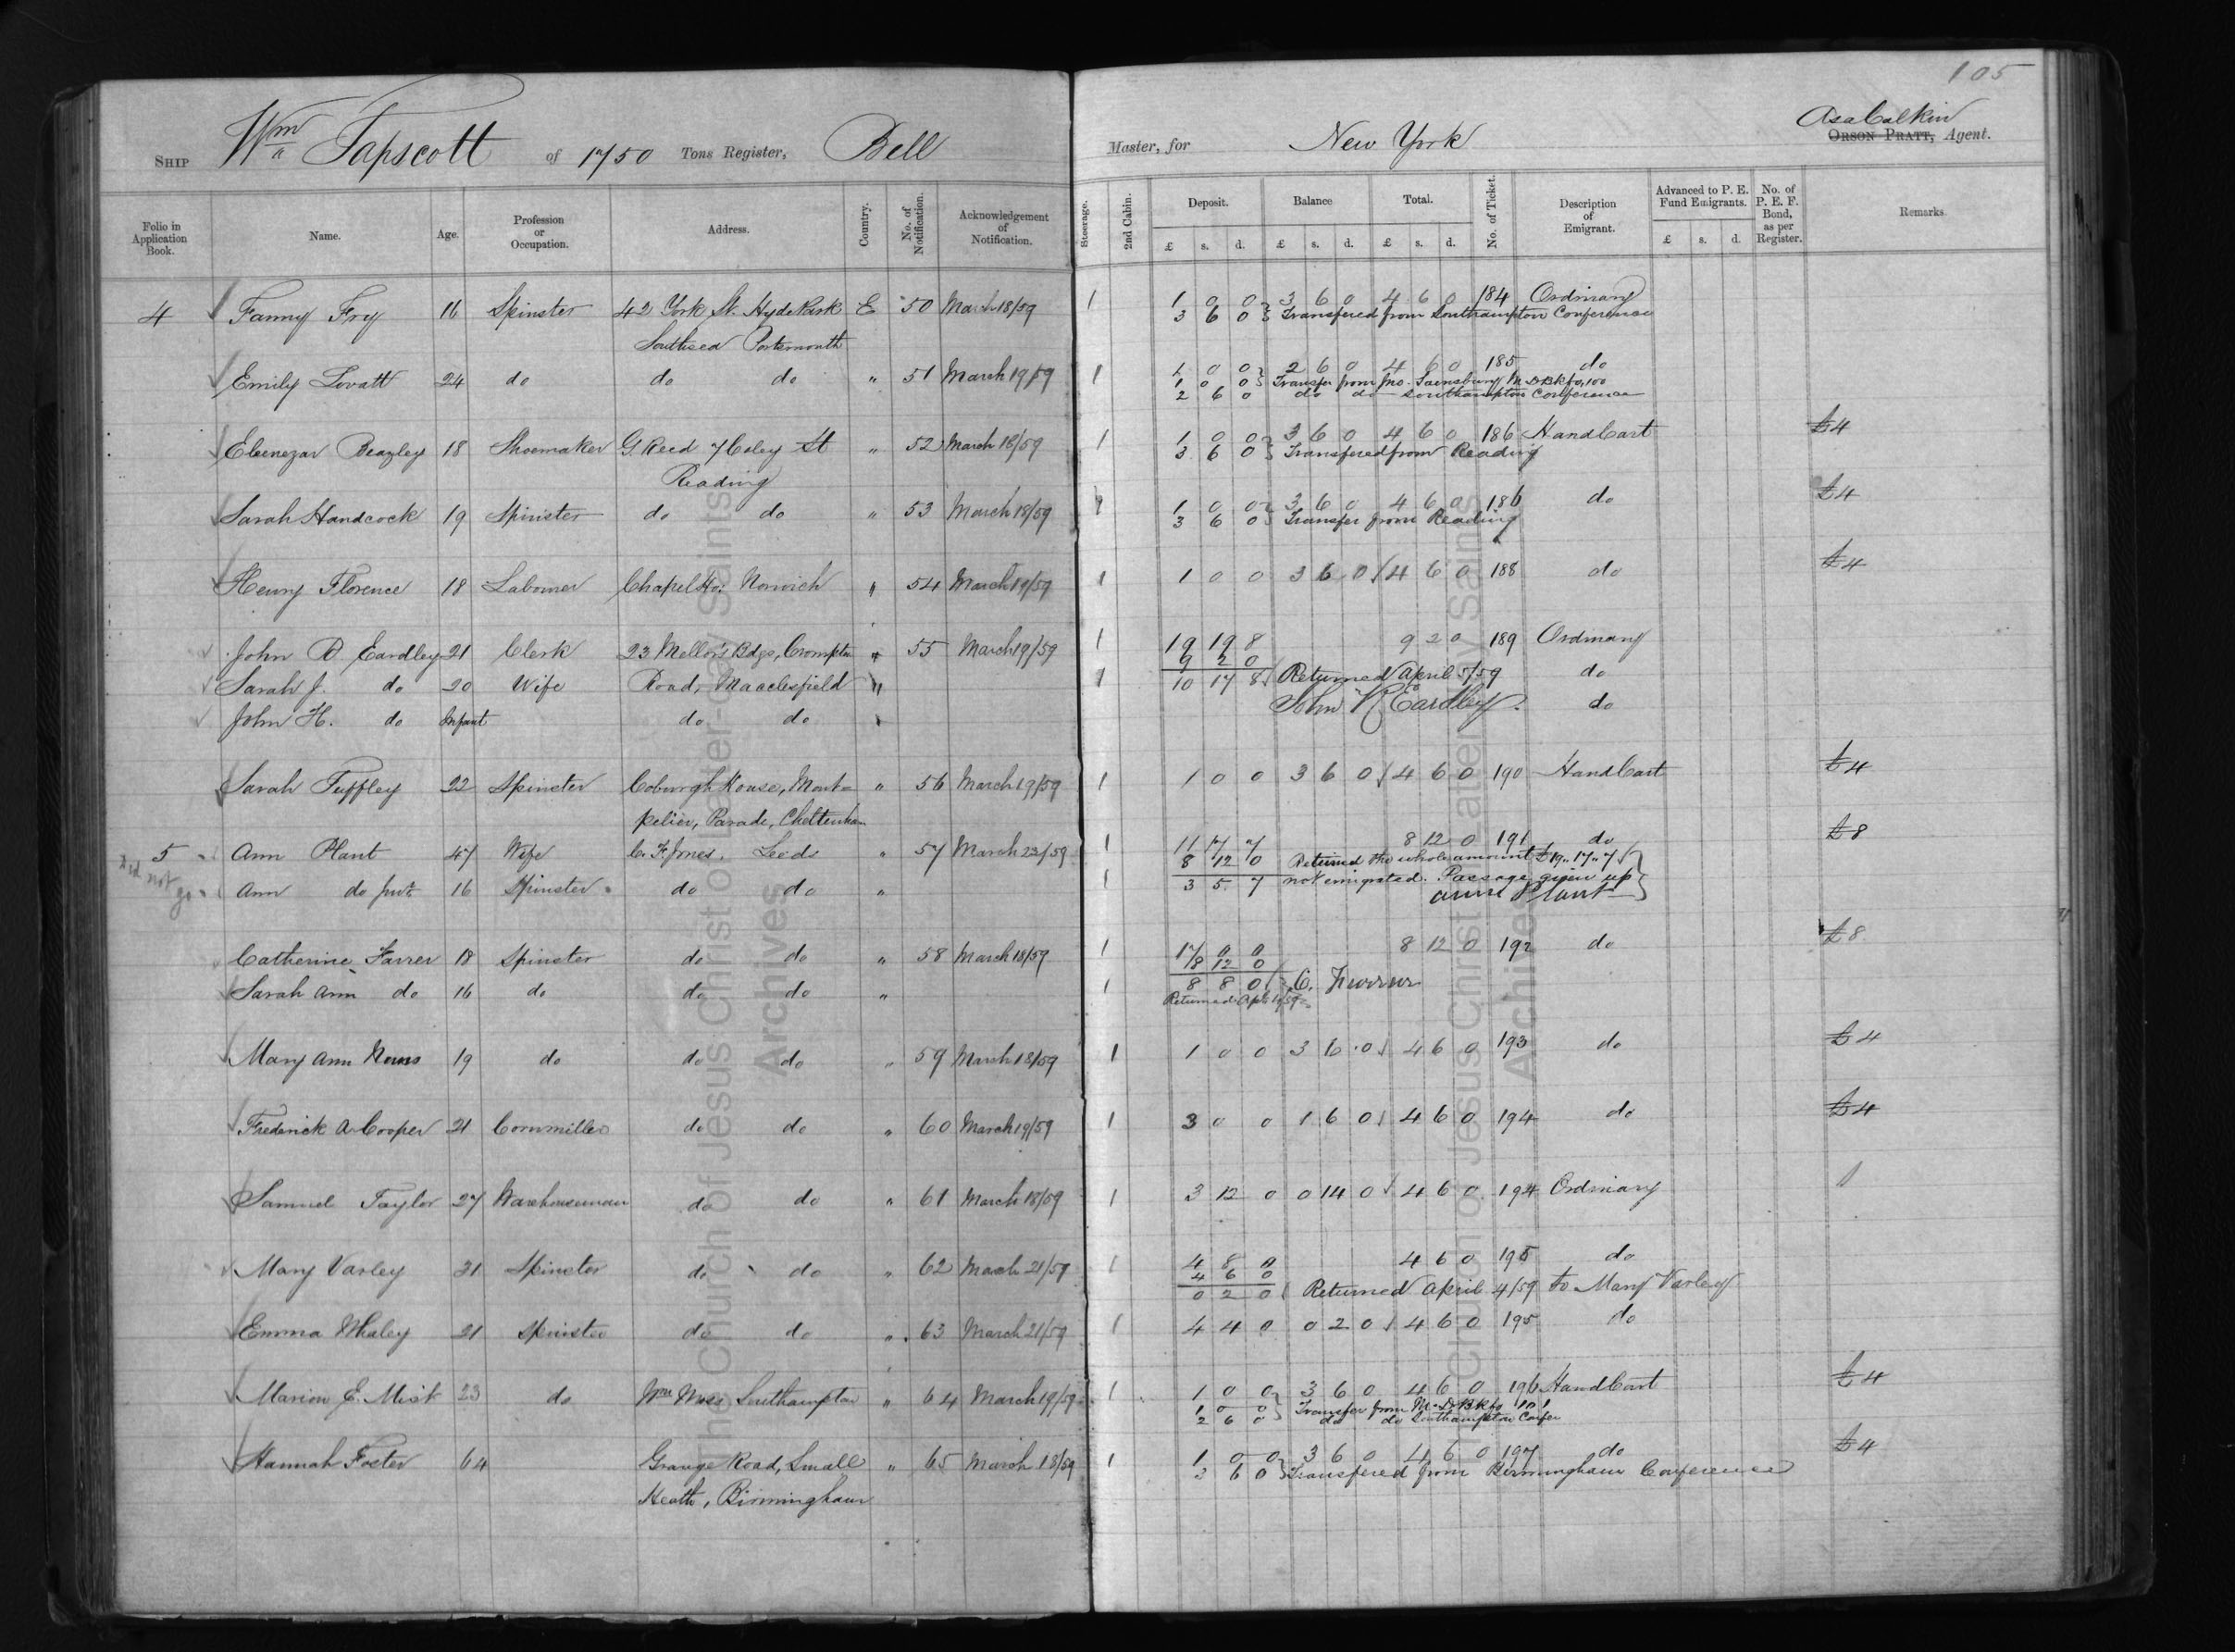 105
Ship Wm Tapscott of 1750 Tons Register, Bell Master, for New York Asa Calkin Orson Pratt, Agent.
Folio in Application Book. Name. Age. Profession or Occupation. Address. Country. No. of Notification. Acknowledgement of Notification. Steerage. 2nd Cabin. Deposit. Balance Total. No. of Ticket. Description of Emigrant. Advanced to P. E. Fund Emigrants. No. of P. E. F. Bond, as per Register. Remarks.
£ s. d. £ s. d. £ s. d. £ s. d.
4 Fanny Fry 16 Spinster 42 York St. Hyde Park E 50 March 18/59 1 1 0 0 3 6 0 4 6 0 184 Ordinary
3 6 0 Transfered from Southampton Conference
Southsea Portsmouth
Emily Lovatt 24 do do do " 51 March 19/59 1 1 0 0 2 6 0 4 6 0 185 do
1 0 0 Transfer from Jno. Sainsbury M. D. Bk fo, 100
2 6 0 do do Southampton Conference
Ebenezar Beazley 18 Shoemaker G Reed 7 Coley St " 52 March 18/59 1 1 0 0 3 6 0 4 6 0 186 HandCart £4
3 6 0 Transfered from Reading
Reading
Sarah Handcock 19 Spinster do do " 53 March 18/59 1 1 0 0 3 6 0 4 6 0 186 do £4
3 6 0 Transfer from Reading
Henry Florence 18 Labourer Chapel Ho: Norwich " 54 March 19/59 1 1 0 0 3 6 0 4 6 0 188 do £4
John R. Eardley 21 Clerk 23 Mellor's Bdgs, Crompton " 55 March 19/59 1 19 19 8 9 2 0 189 Ordinary
9 2 0
Sarah J. do 20 Wife Road, Macclesfield " 1 10 17 8 Returned April 5/59 do
John H. do Infant do do " John R Eardley. do
Sarah Tuffley 22 Spinster Coburgh House, Mont= " 56 March 19/59 1 1 0 0 3 6 0 4 6 0 190 HandCart £4
pelier, Parade, Cheltenham
5 Ann Plant 47 Wife C. F. Jones. Leeds " 57 March 22/59 1 11 17 7 8 12 0 191 do £8
8 12 0 Returned the whole amount £19,, 17,, 7
Did not go Ann do junr 16 Spinster do do " 1 3 5 7 not emigrated. Passage given up
anne Plant
Catherine Farrer 18 Spinster do do " 58 March 18/59 1 17 0 0 8 12 0 192 do £8
8 12 0
Sarah Ann do 16 do do do " 1 8 8 0 C. Farrar
Returned Apl 19/59
Mary Ann 19 do do do " 59 March 18/59 1 1 0 0 3 6 0 4 6 0 193 do £4
Frederick A Cooper 21 Cornmiller do do " 60 March 19/59 1 3 0 0 1 6 0 4 6 0 194 do £4
Samuel Taylor 27 Warehouseman do do " 61 March 18/59 1 3 12 0 0 14 0 4 6 0 194 Ordinary
Mary Varley 31 Spinster do do " 62 March 21/59 1 4 8 0 4 6 0 195 do
4 6 0
0 2 0 Returned April 4/59 to Mary Varley
Emma Whaley 21 Spinster do do " 63 March 21/59 1 4 4 0 0 2 0 4 6 0 195 do
Marion E. Mist 23 do Wm Moss Southampton " 64 March 19/59 1 1 0 0 3 6 0 4 6 0 196 HandCart £4
1 0 0 Transfer from M. D. Bk fo 101
2 6 0 do do Southampton Confer
Hannah Foster 64 Grange Road, Small " 65 March 18/59 1 1 0 0 3 6 0 4 6 0 197 do £4
3 6 0 Transfered from Birmingham Conference
Heath, Birmingham
The Church of Jesus Christ of Latter-day Saints
Archives
The Church of Jesus Christ of Latter-day Saints
Archives